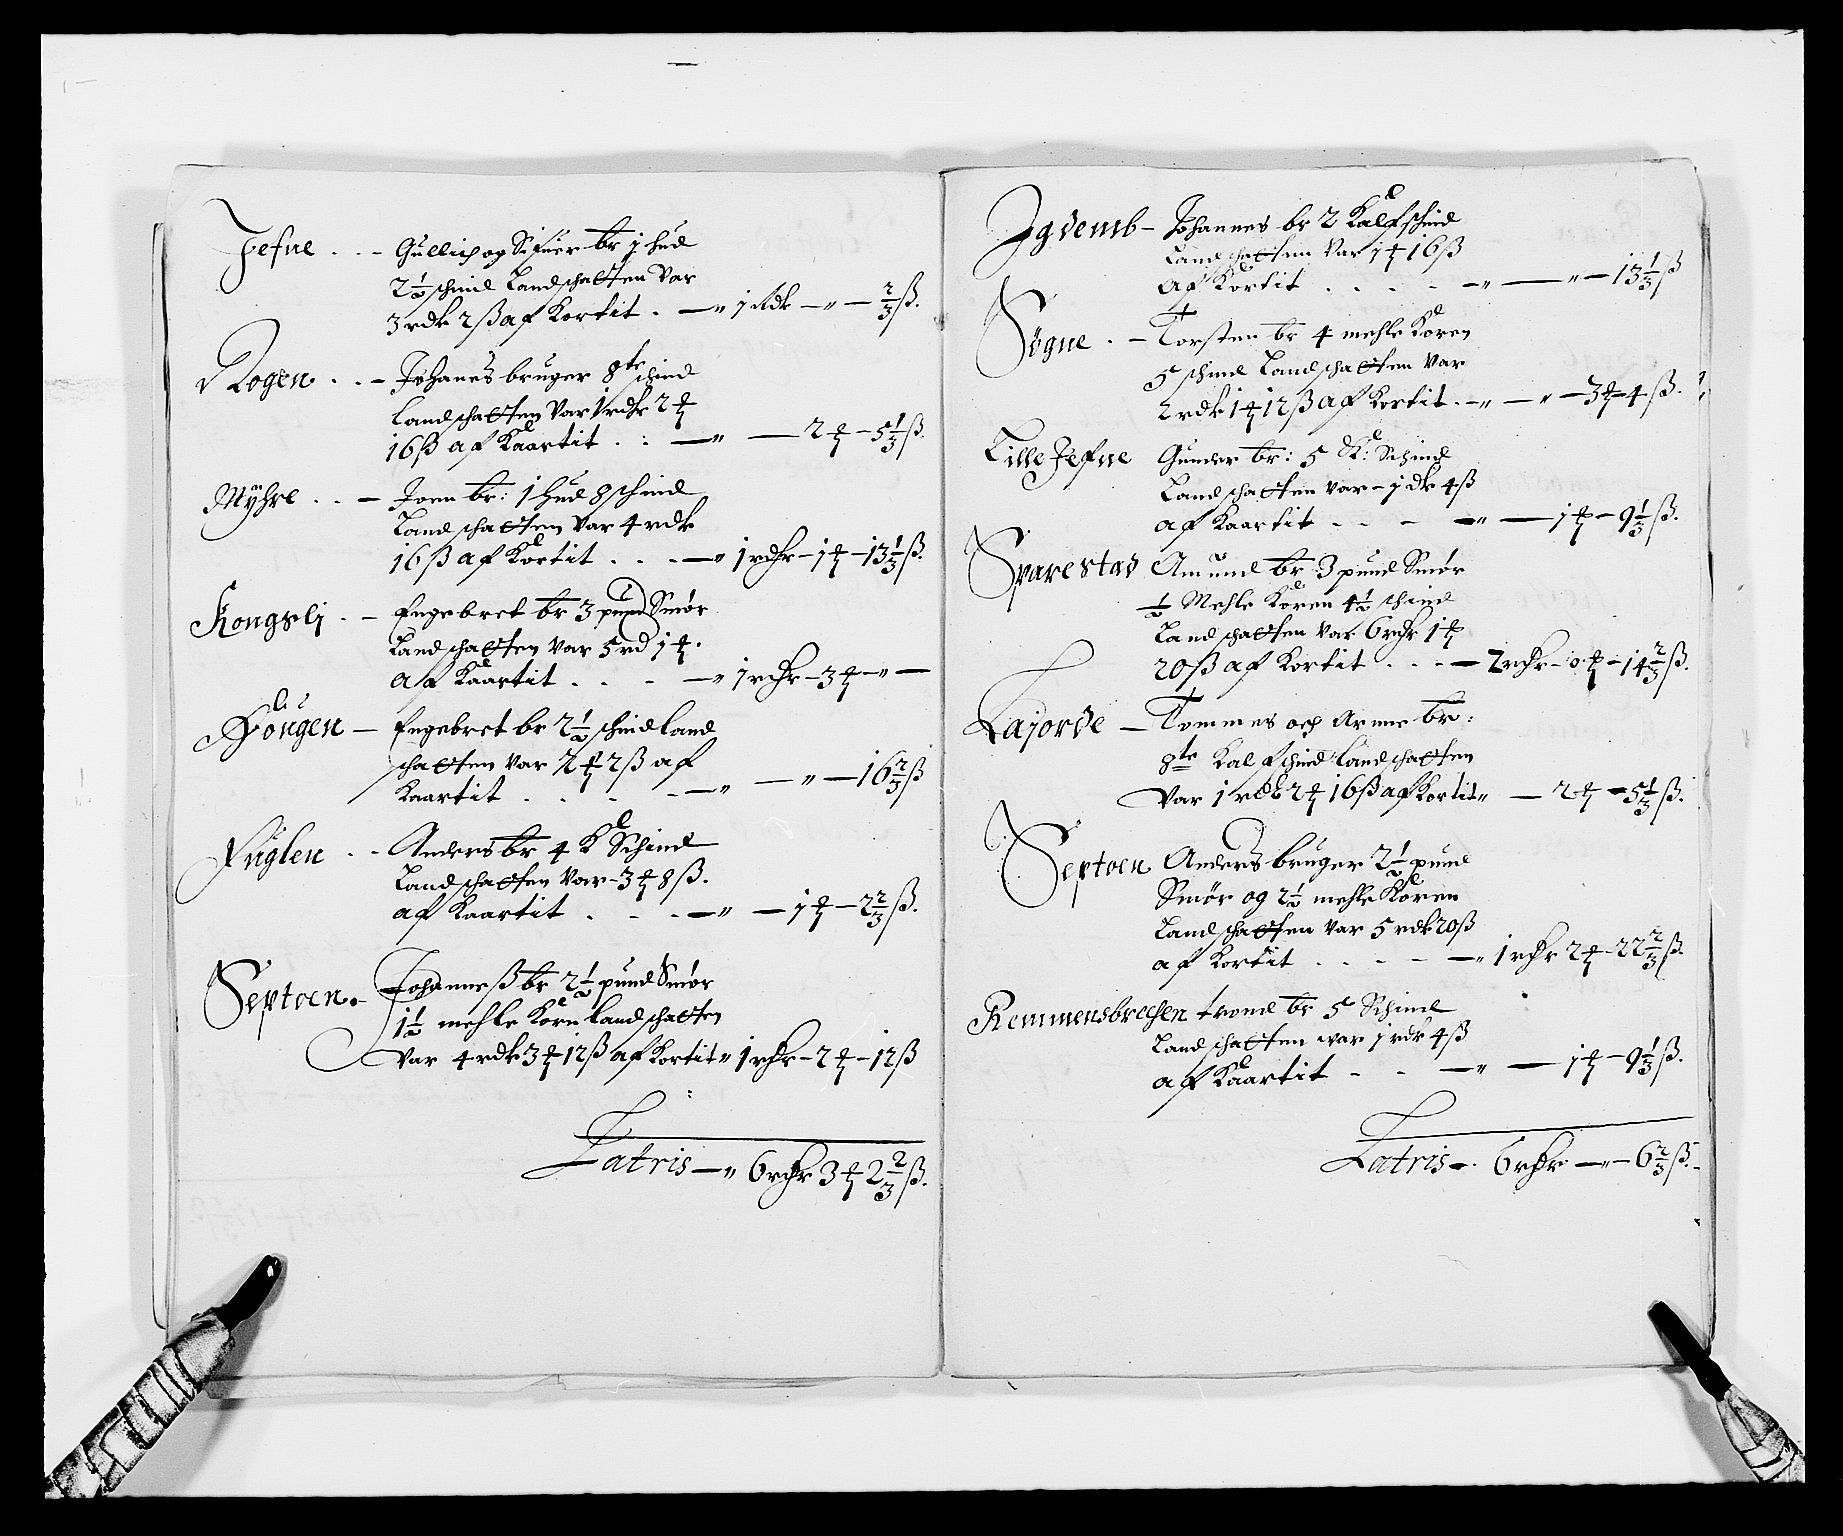 Jefne . . - Gullich og Sifuer br 1 hud
2½ schind Landschatten Var
3 rdr 2 ß af Kortit . — „ 1 Rdr — „ — ⅔ ß.
Rogen . . - Johanes bruger 8te schind
Landschatten Var 1 rdr 2 ⅌
16 ß af Kaartit . : — „ — 2 ⅌ - 5⅓ ß.
Myhre . . - Joen br: 1 hud 8 schind
Landschatten Var 4 rdr
16 ß af Kortit . . . — „ 1 rdr - 1 ⅌ - 13⅓ ß.
Kongslj . - Engebret br 3 pund Smør
Landschatten Var 5 rd 1 ⅌.
af Kaartit . . . — „ 1 rdr - 3 ⅌ - „ —
Engebret br 2½ schind land
schatten Var 2 ⅌ 2 ß af
Kaartit . . . . — „ — „ — 16⅔ ß
Fuglen . . - Anders br 4 K Schind
Landschatten Var - 3 ⅌ 8 ß.
af Kaartit . . . — „ — 1 ⅌ - 2⅔ ß.
Septoen . - Johanneß br 2½ pund Smør
1½ mehle Korn landschatten
Var 4 rdr 3 ⅌ 12 ß af Kortit „ 1 rdr - 2 ⅌ - 12 ß
Latris — „ 6 rdr 3 ⅌ 2⅔ ß.
Johannes br 2 Kalfschind
Landschatten Var 1 ⅌ 16 ß
Af Kortit . . . . — „ — „ — 13⅓ ß
Søgne . - Torsten br 4 mehle Koren
5 schind Landschatten Var
2 rdr 1 ⅌ 12 ß af Kortit . - „ — „ — 3 ⅌ - 4 ß.
Lille Jefne Gunder br: 5 K: Schind
Landschatten Var - 1 dr 4 ß
af Kaartit . . . — „ — 1 ⅌ - 9⅓ ß.
Svarestad Amund br 3 pund Smør
½ Mehle Koren 4½ schind
Landschatten Var 6 rdr 1 ⅌
20 ß af Kortit . . . — 2 rdr - 0 ⅌ - 14⅔ ß.
Lajorde — Tommes och Arnne br:
8te Kalfschind landschatten
Var 1 rdr 2 ⅌ 16 ß af Kortit „ — 2 ⅌ - 5⅓ ß.
Septoen Anders bruger 2½ pund
Smør og 2½ mehle Koren
Landschatten Var 5 rdr 20 ß
af Kortit . . . . — „ 1 rdr 2 ⅌ - 22⅔ ß.
Remmensbrechen trond br 5 Schind
Landschatten war 1 rdr 4 ß
af Kaartit . . — „ — 1 ⅌ - 9⅓ ß.
Latris — . 6 rdr — „ — 6⅔ ß.